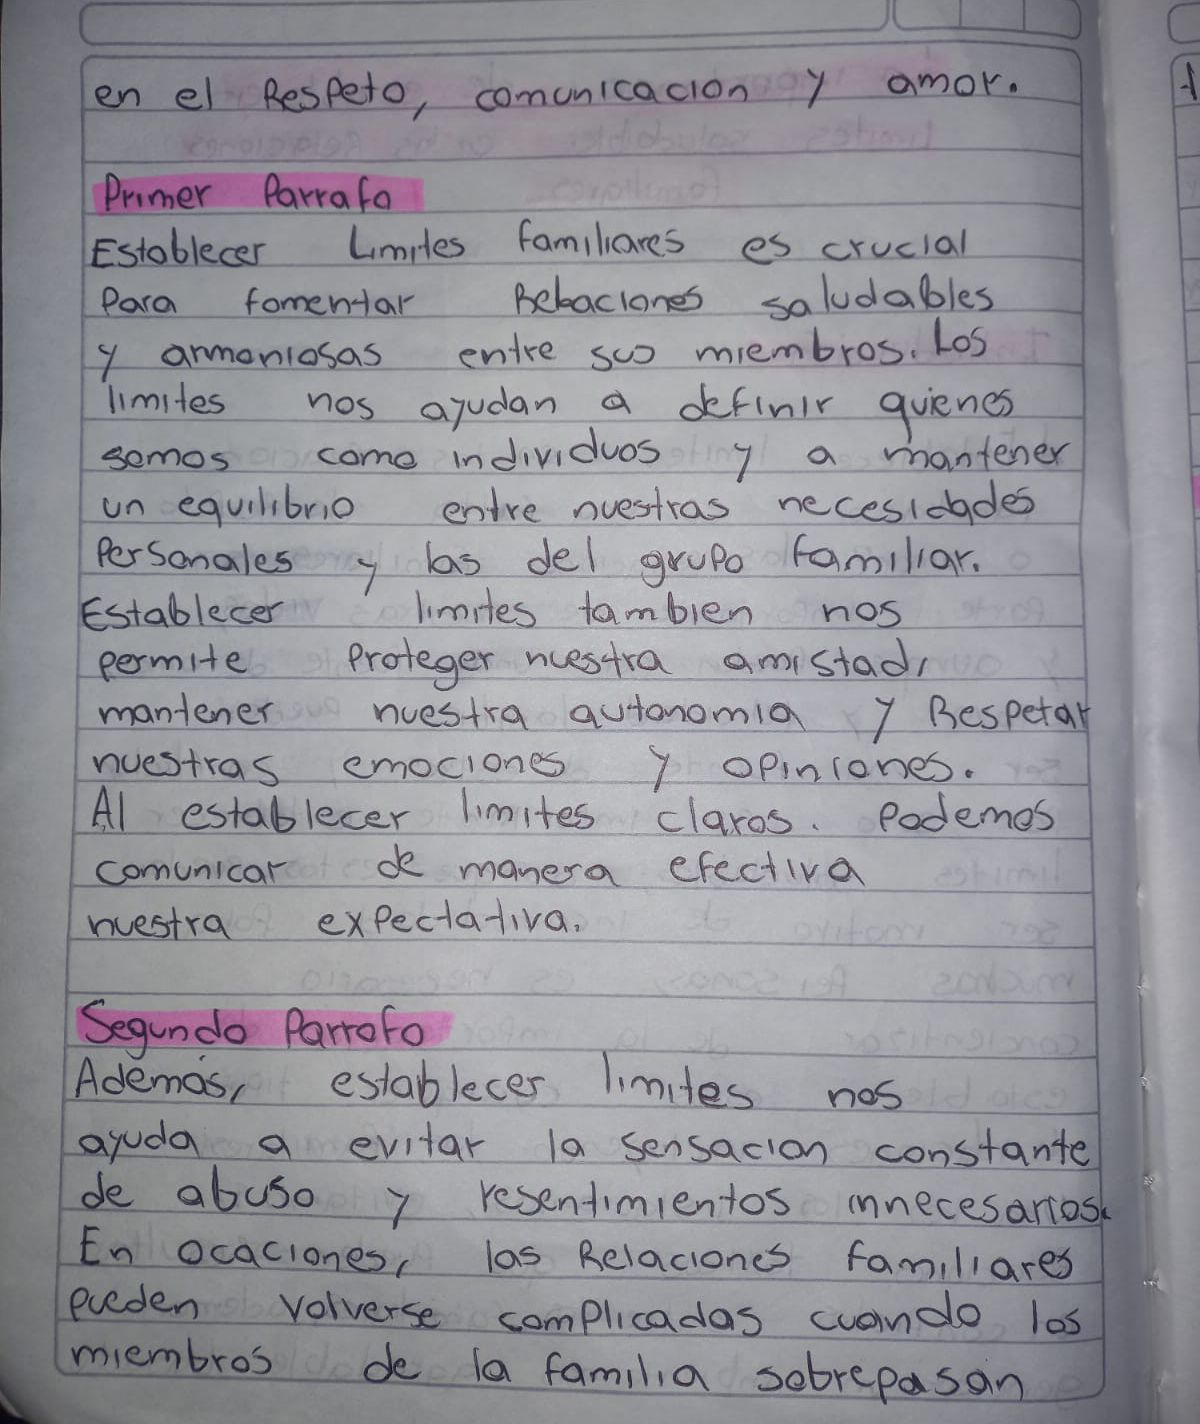 en el Respeto, comunicacion y amor.
Primer Parrafo
Establecer Limites familiares es crucial
Para fomentar Relaciones saludables
y armoniosas entre sus miembros. Los
limites nos ayudan a definir quienes
somos como individuos y a mantener
un equilibrio entre nuestras necesidades
Personales y las del grupo familiar.
Establecer limites tambien nos
permite Proteger nuestra amistad,
mantener nuestra autonomia y Respetar
nuestras emociones y opiniones.
Al establecer limites claros. Podemos
comunicar de manera efectiva
nuestra expectativa.
Segundo Parrafo
Además, establecer limites nos
ayuda a evitar la sensacion constante
de abuso y resentimientos innecesarios.
En ocaciones, las Relaciones familiares
pueden volverse complicadas cuando los
miembros de la familia sobrepasan